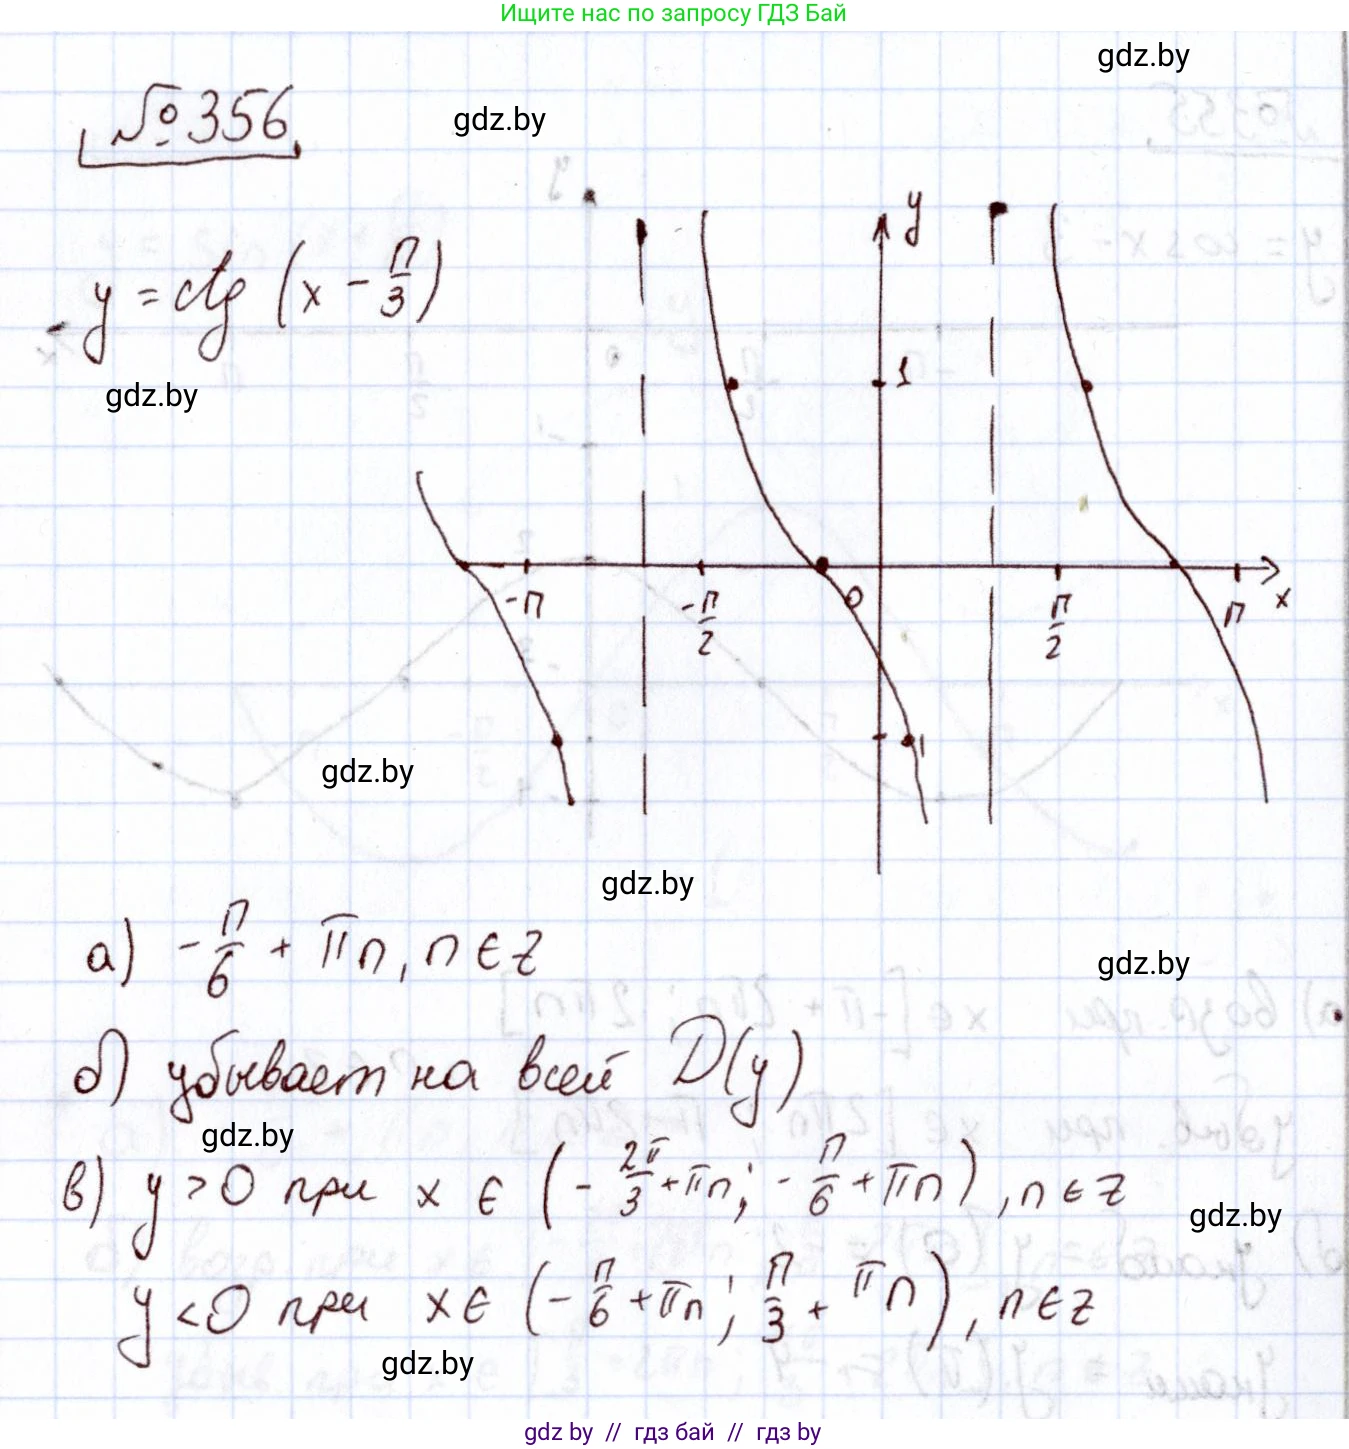 Ищите нас по запросу ГДЗ Бай
gdz.by
№356
gdz.by
y = ctg (x - π/3)
gdz.by
y
1
-π
-π/2
0
π/2
π
x
1
gdz.by
gdz.by
а) -π/6 + πn, n ∈ Z
gdz.by
б) убывает на всей D(y)
gdz.by
в) y > 0 при x ∈ (-2π/3 + πn; -π/6 + πn), n ∈ Z
gdz.by
y < 0 при x ∈ (-π/6 + πn; π/3 + πn), n ∈ Z
gdz.by
gdz by // гдз бай // гдз by